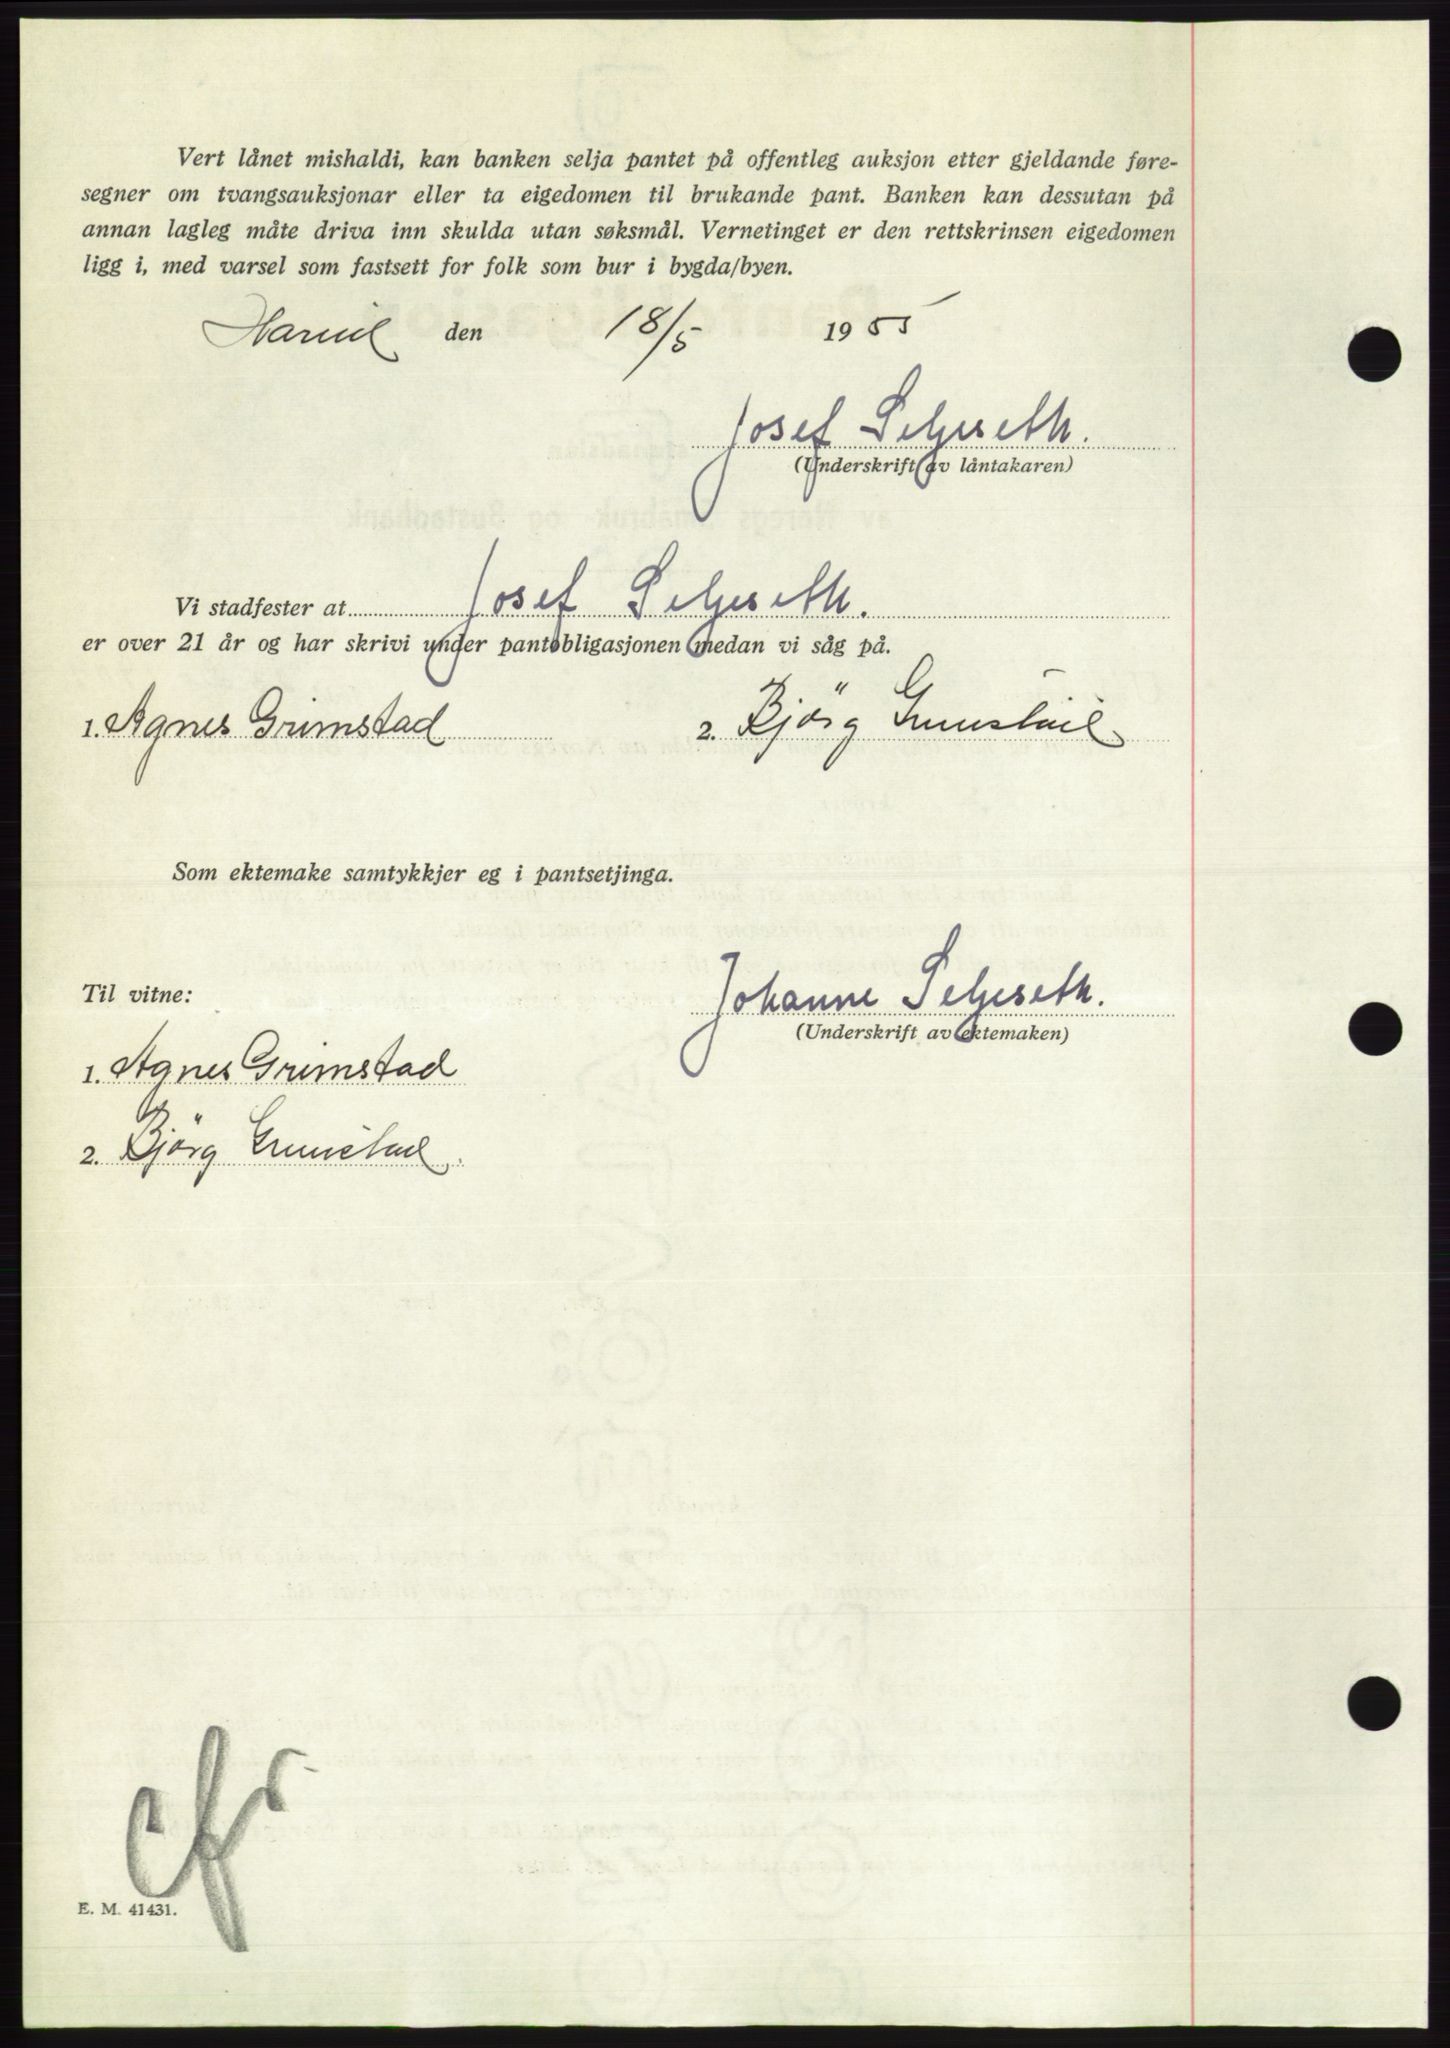 Vert lånet mishaldi, kan banken selja pantet på offentleg auksjon etter gjeldande føre-
segner om tvangsauksjonar eller ta eigedomen til brukande pant. Banken kan dessutan på
annan lagleg måte driva inn skulda utan søksmål. Vernetinget er den rettskrinsen eigedomen
ligg i, med varsel som fastsett for folk som bur i bygda/byen.
den 18/5 1955
Josef Seljeseth.
(Underskrift av låntakaren)
Vi stadfester at Josef Seljeseth.
er over 21 år og har skrivi under pantobligasjonen medan vi såg på.
1. Agnes Grimstad 2. Björg Grimstad
Som ektemake samtykkjer eg i pantsetjinga.
Til vitne: Johanne Seljeseth.
(Underskrift av ektemaken)
1. Agnes Grimstad
2. Björg Grimstad.
E. M. 41431.